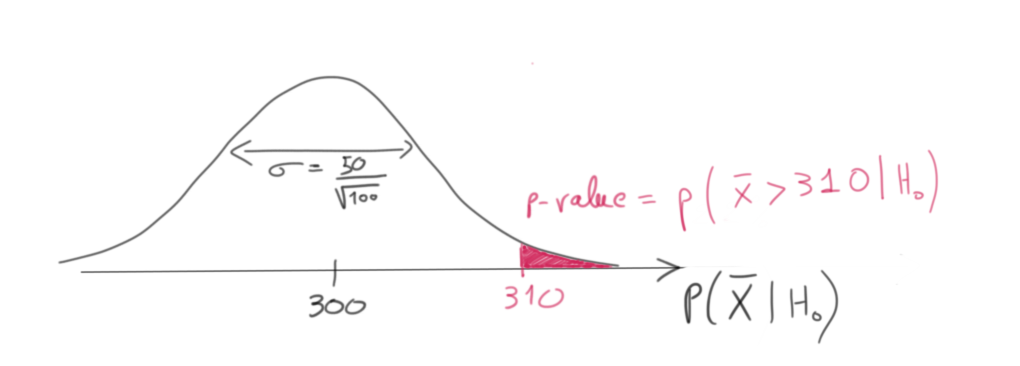 σ = 50/√100
p-value = p( X̄ > 310 | H₀)
300
310
P(X̄ | H₀)